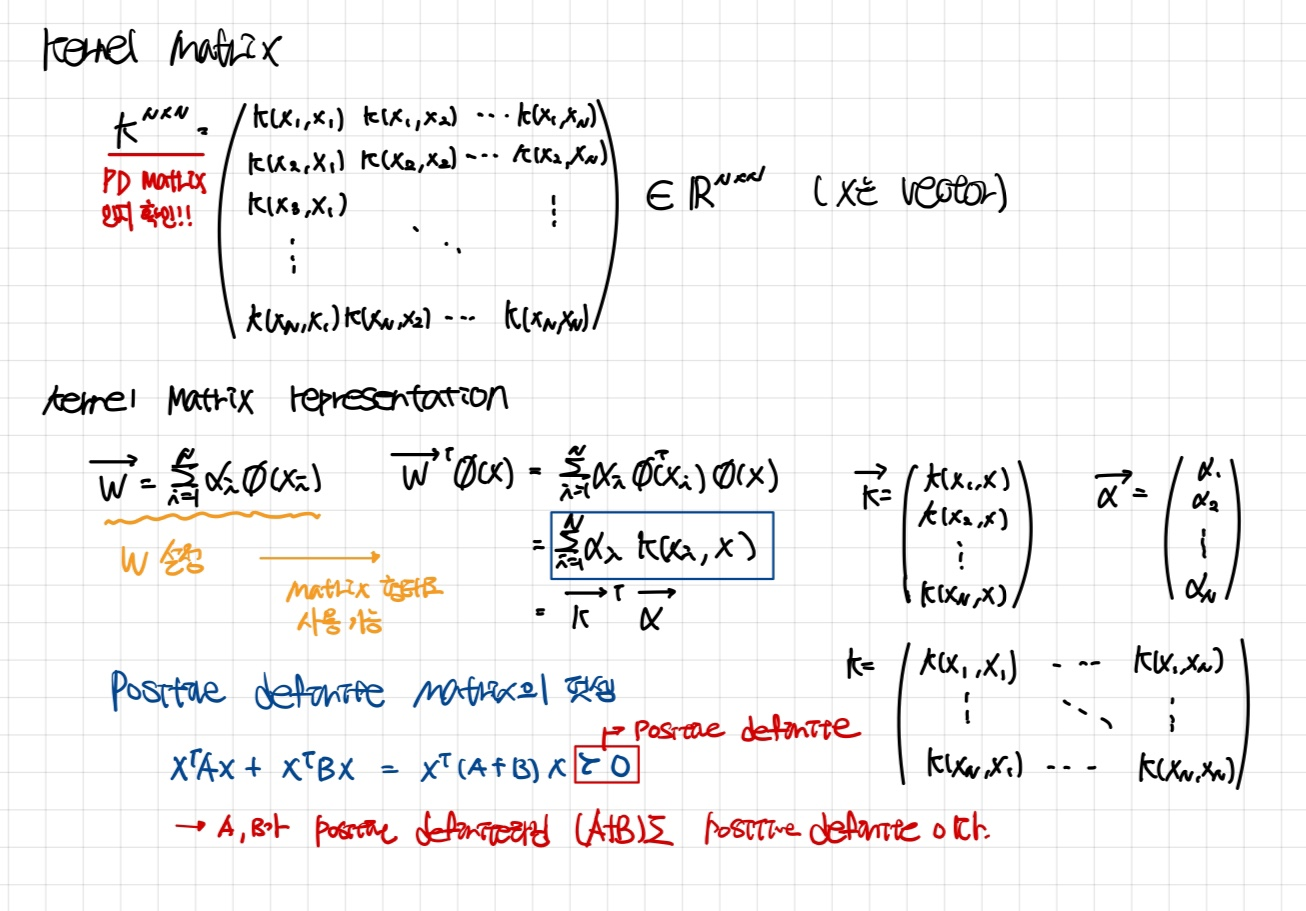 kernel Matrix
K^{N×N} = ( k(x₁,x₁) k(x₁,x₂) ⋯ k(x₁,x_N)
k(x₂,x₁) k(x₂,x₂) ⋯ k(x₂,x_N)
k(x₃,x₁) ⋮
⋮ ⋱
k(x_N,x₁) k(x_N,x₂) ⋯ k(x_N,x_N) )
∈ ℝ^{N×N} (x는 vector)
PD Matrix
인지 확인!!
kernel Matrix representation
W⃗ = Σ_{i=1}^{N} α_i Ø(x_i)
W⃗^T Ø(x) = Σ_{i=1}^{N} α_i Ø^T(x_i) Ø(x)
= Σ_{i=1}^{N} α_i k(x_i, x)
= k⃗^T α⃗
W 설정 →
Matrix 형태로
사용 가능
k⃗ = ( k(x₁,x)
k(x₂,x)
⋮
k(x_N,x) )
α⃗ = ( α₁
α₂
⋮
α_N )
k = ( k(x₁,x₁) ⋯ k(x₁,x_N)
⋮ ⋱ ⋮
k(x_N,x₁) ⋯ k(x_N,x_N) )
Positive definite matrix의 덧셈
x^T A x + x^T B x = x^T (A+B) x ≥ 0
→ Positive definite
→ A, B가 positive definite라면 (A+B)도 positive definite 이다.